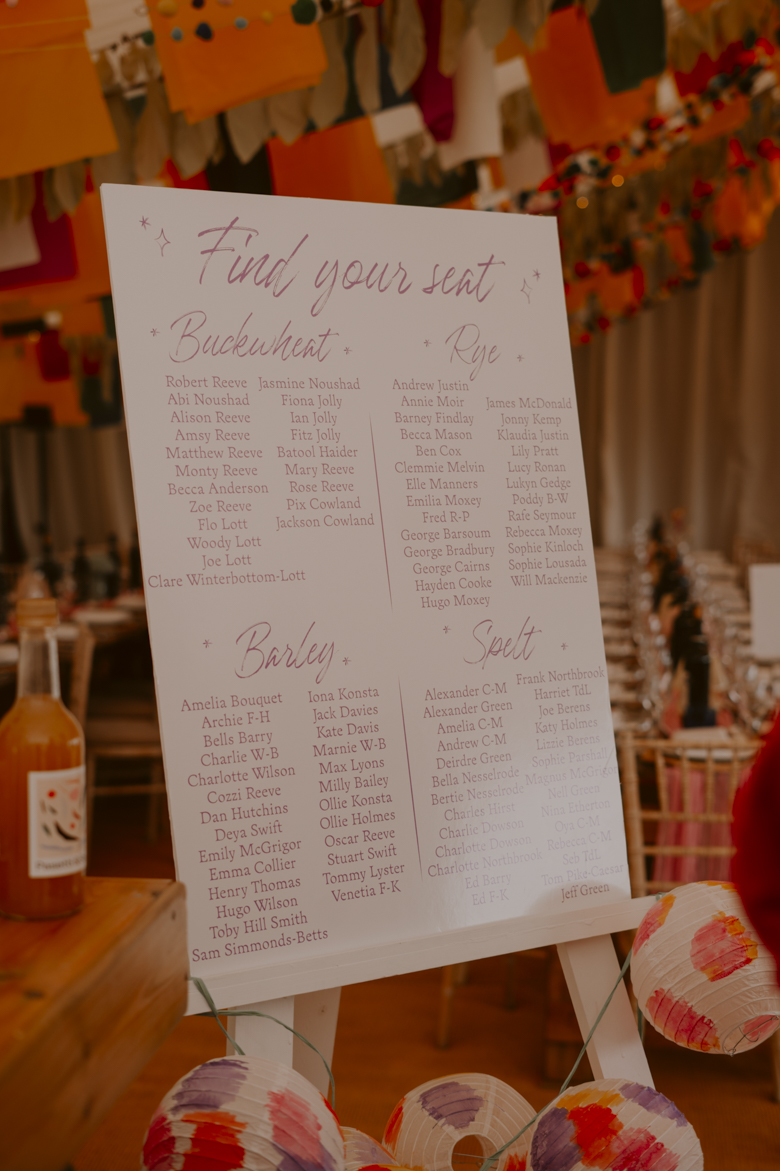 Find your seat
Buckwheat
Robert Reeve
Abi Noushad
Alison Reeve
Amsy Reeve
Matthew Reeve
Monty Reeve
Becca Anderson
Zoe Reeve
Flo Lott
Woody Lott
Joe Lott
Clare Winterbottom-Lott
Jasmine Noushad
Fiona Jolly
Ian Jolly
Fitz Jolly
Batool Haider
Mary Reeve
Rose Reeve
Pix Cowland
Jackson Cowland
Rye
Andrew Justin
Annie Moir
Barney Findlay
Becca Mason
Ben Cox
Clemmie Melvin
Elle Manners
Emilia Moxey
Fred R-P
George Barsoum
George Bradbury
George Cairns
Hayden Cooke
Hugo Moxey
James McDonald
Jonny Kemp
Klaudia Justin
Lily Pratt
Lucy Ronan
Lukyn Gedge
Poddy B-W
Rafe Seymour
Rebecca Moxey
Sophie Kinloch
Sophie Lousada
Will Mackenzie
Barley
Amelia Bouquet
Archie F-H
Bells Barry
Charlie W-B
Charlotte Wilson
Cozzi Reeve
Dan Hutchins
Deya Swift
Emily McGrigor
Emma Collier
Henry Thomas
Hugo Wilson
Toby Hill Smith
Sam Simmonds-Betts
Iona Konsta
Jack Davies
Kate Davis
Marnie W-B
Max Lyons
Milly Bailey
Ollie Konsta
Ollie Holmes
Oscar Reeve
Stuart Swift
Tommy Lyster
Venetia F-K
Spelt
Alexander C-M
Alexander Green
Amelia C-M
Andrew C-M
Deirdre Green
Bella Nesselrode
Bertie Nesselrode
Charles Hirst
Charlie Dowson
Charlotte Dowson
Charlotte Northbrook
Ed Barry
Ed F-K
Frank Northbrook
Harriet TdL
Joe Berens
Katy Holmes
Lizzie Berens
Sophie Parshall
Magnus McGrigor
Nell Green
Nina Etherton
Oya C-M
Rebecca C-M
Seb TdL
Tom Pike-Caesar
Jeff Green